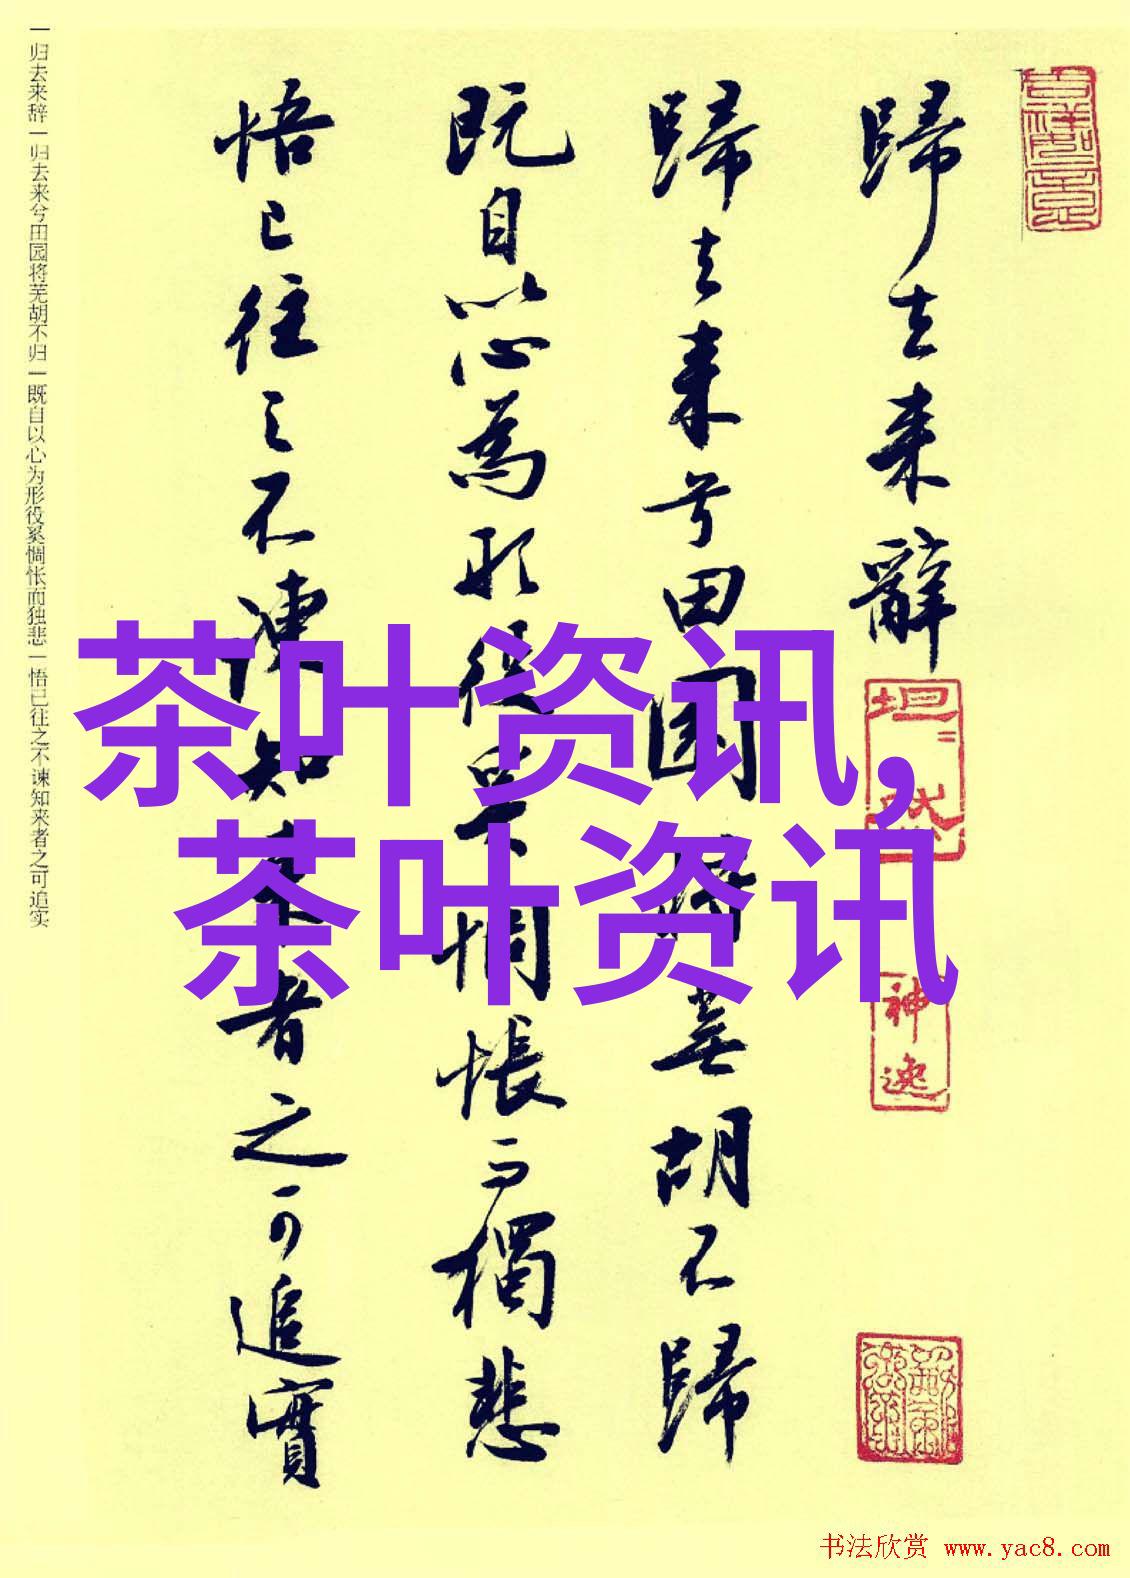 吉祥如意
歸去来辭
坦然
神逸
歸去来兮田園将蕪胡不歸
既自以心為形役奚惆悵而獨悲
悟已往之不諫知来者之可追實
一归去来辞一归去来兮田园将芜胡不归一既自以心为形役奚惆怅而独悲一悟已往之不谏知来者之可追实
茶叶资讯,
茶叶资讯
书法欣赏 www.yac8.com